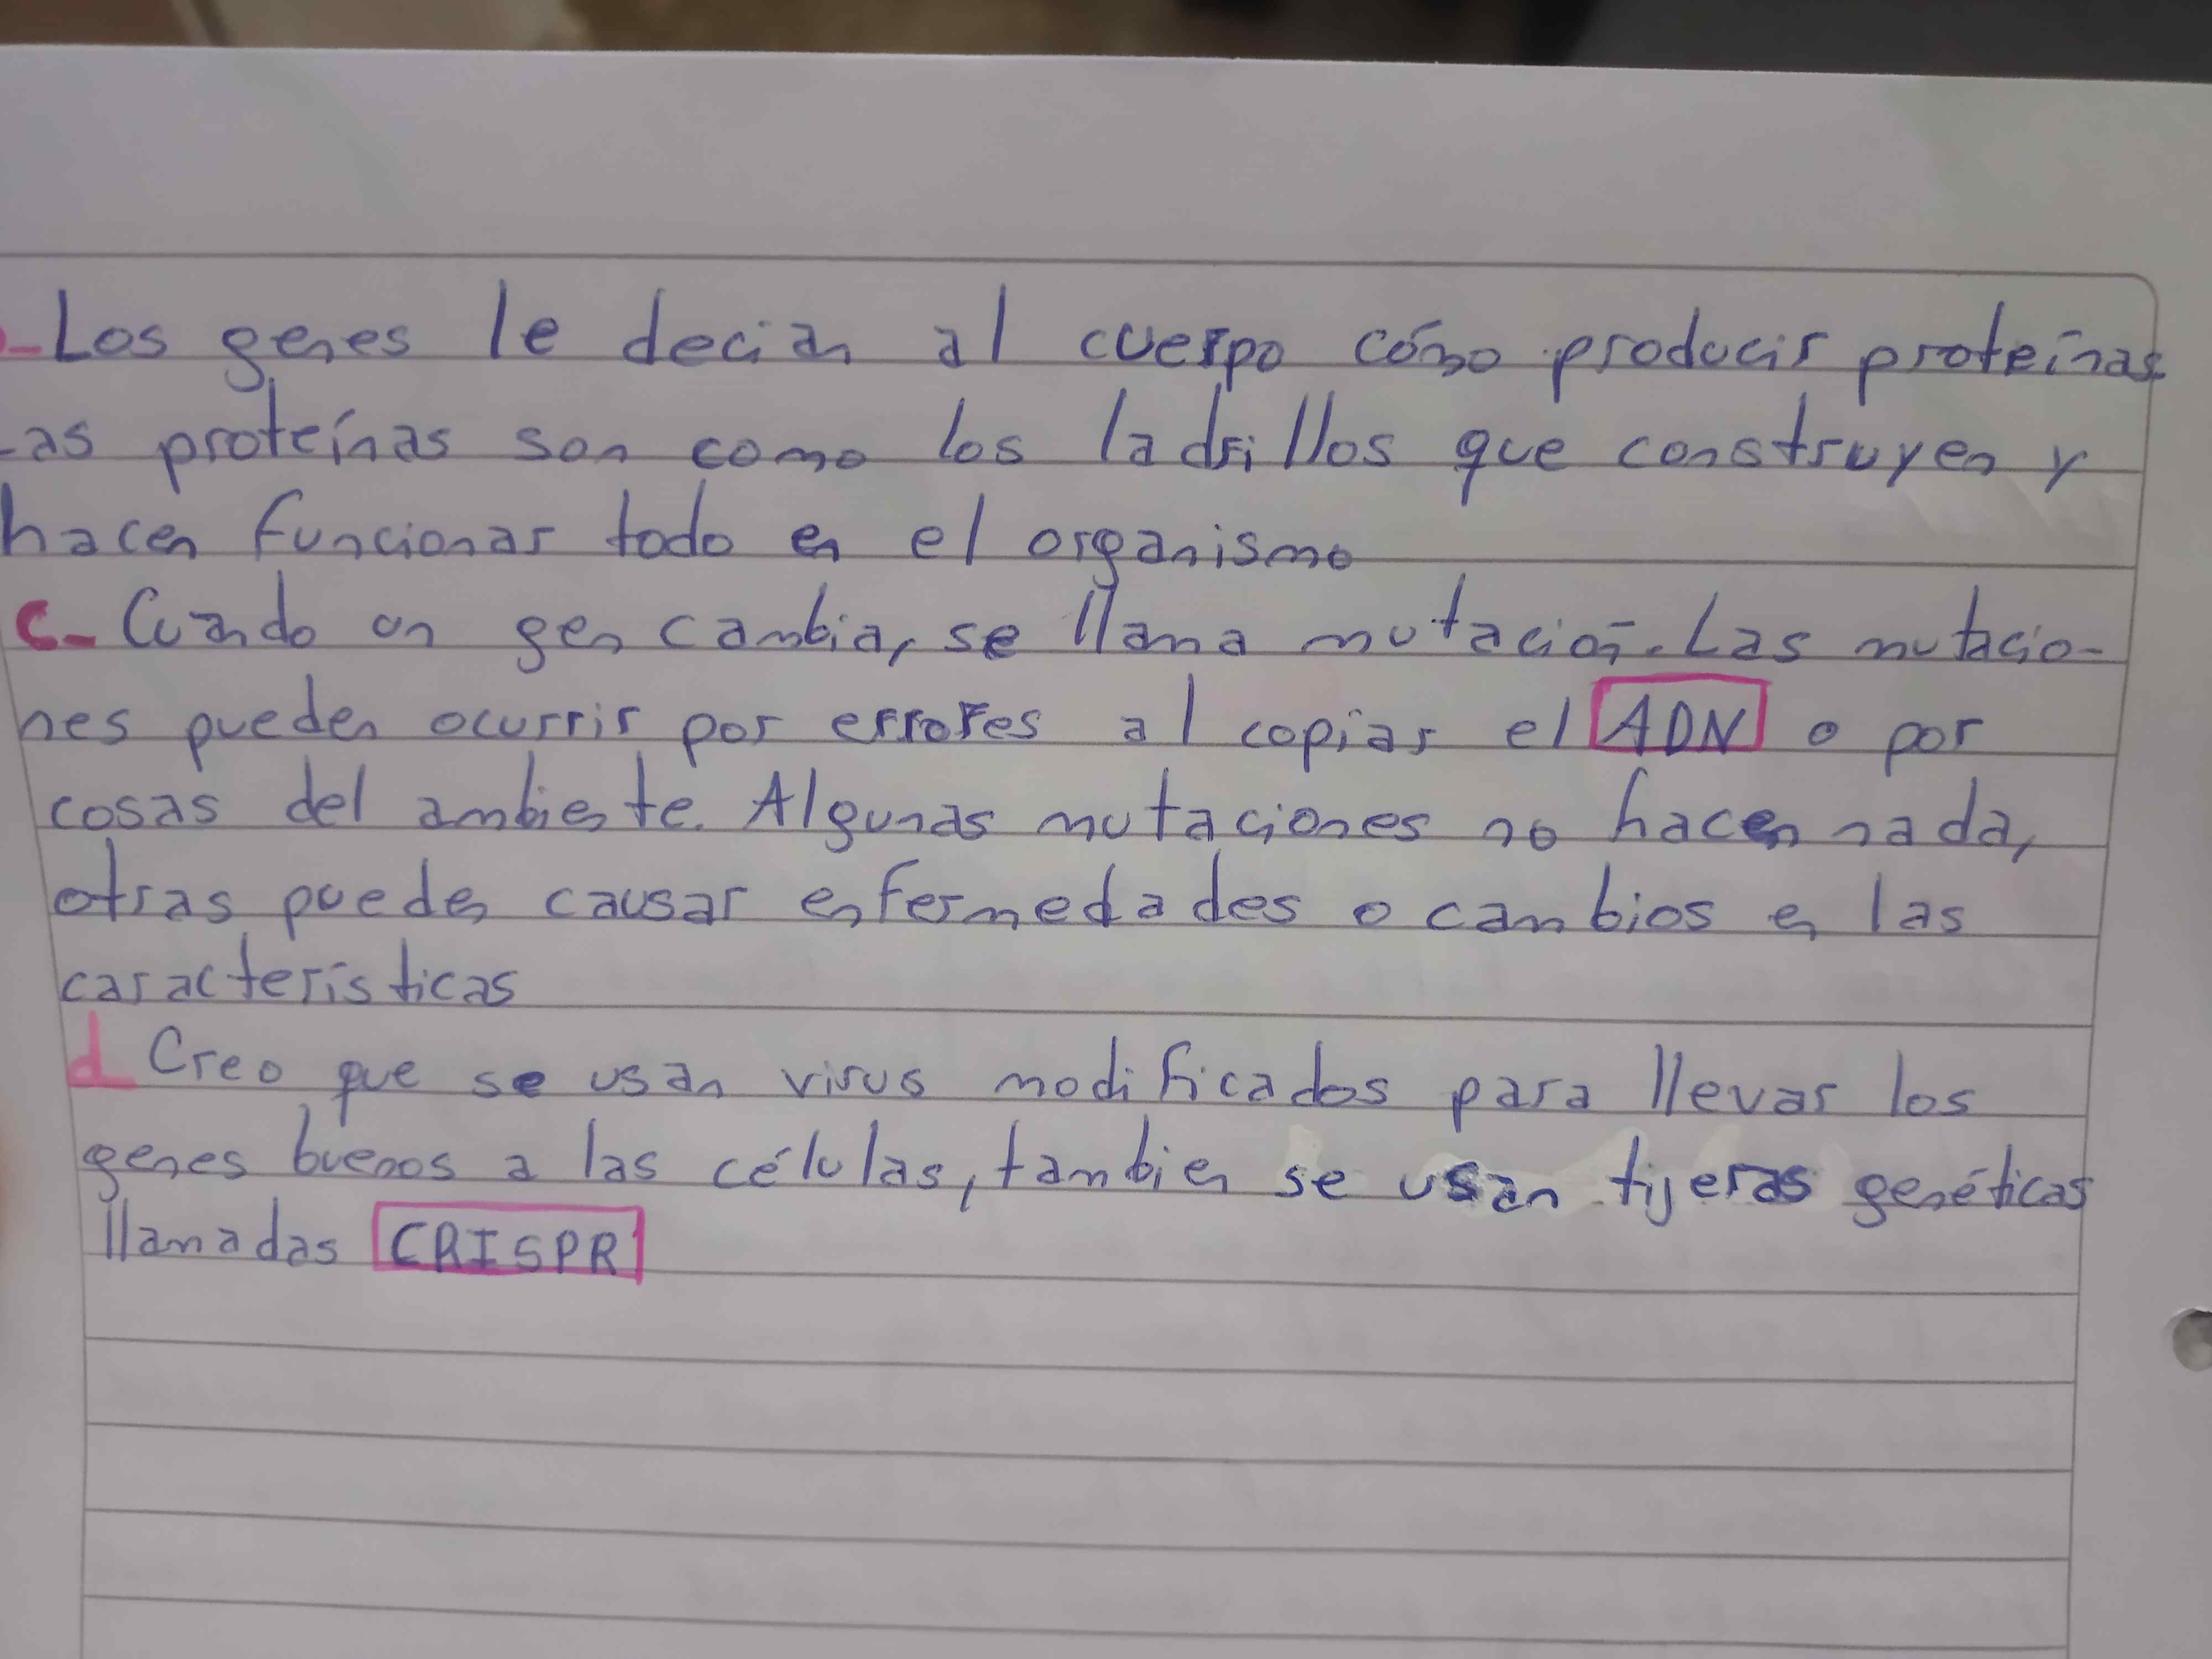 - Los genes le decian al cuerpo cómo producir proteínas
Las proteínas son como los ladrillos que construyen y
hacen funcionar todo en el organismo
c- Cuando un gen cambia, se llama mutación. Las mutacio-
nes pueden ocurrir por errores al copiar el ADN o por
cosas del ambiente. Algunas mutaciones no hacen nada,
otras pueden causar enfermedades o cambios en las
caracteristicas
d Creo que se usan virus modificados para llevar los
genes buenos a las células, tambien se usan tijeras genéticas
llamadas CRISPR